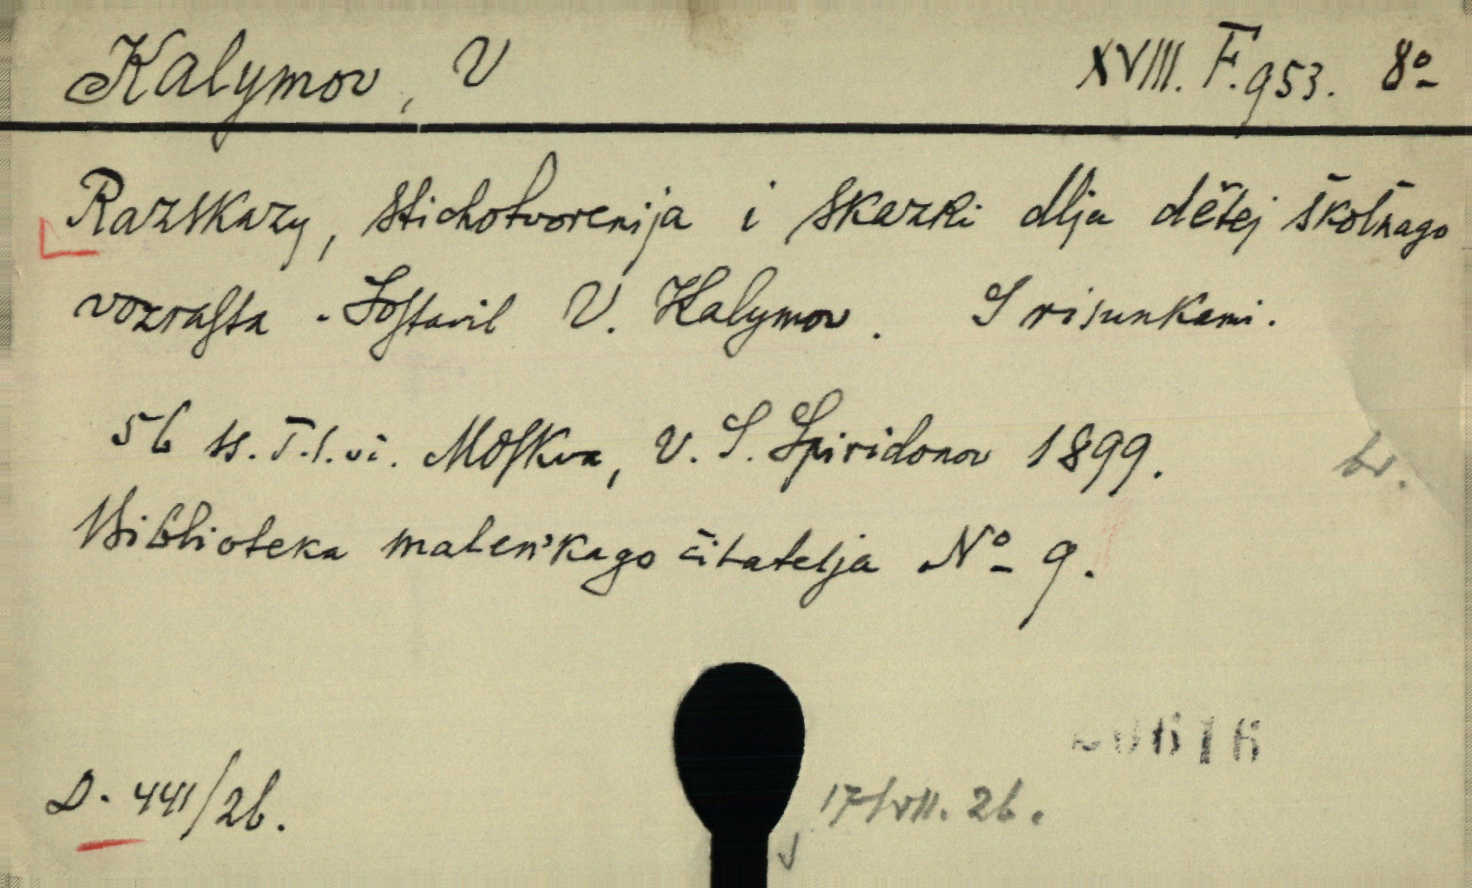 Kalymov, V XVIII. F. 953. 8º
Razskazy, stichotvorenija i skazki dlja dětej škol'nago
vozrasta. Sostavil V. Kalymov. S risunkami.
56 ss. T.l.vi. Moskva, V. S. Spiridonov 1899. br.
Biblioteka malen'kago čitatelja Nº 9.
D. 441/26.
17/VII. 26.